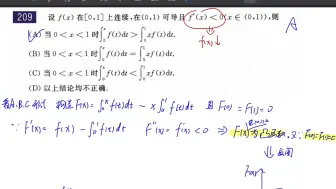 209 设 f(x) 在[0,1]上连续,在(0,1)可导且 f′(x)<0(x∈(0,1)),则
A
f(x)↓
(A) 当 0<x<1 时∫₀ˣ f(t)dt>∫₀¹ xf(t)dt.
(B) 当 0<x<1 时∫₀ˣ f(t)dt=∫₀¹ xf(t)dt.
(C) 当 0<x<1 时∫₀ˣ f(t)dt<∫₀¹ xf(t)dt.
(D) 以上结论均不正确.
A.B.C 构造 F(x)=∫₀ˣf(t)dt - x∫₀¹f(t)dt 且 F(0)=F(1)=0
∵ F′(x)=f(x)-∫₀¹f(t)dt F″(x)=f′(x)<0 ⇒ F(x)
⇓
F(x)